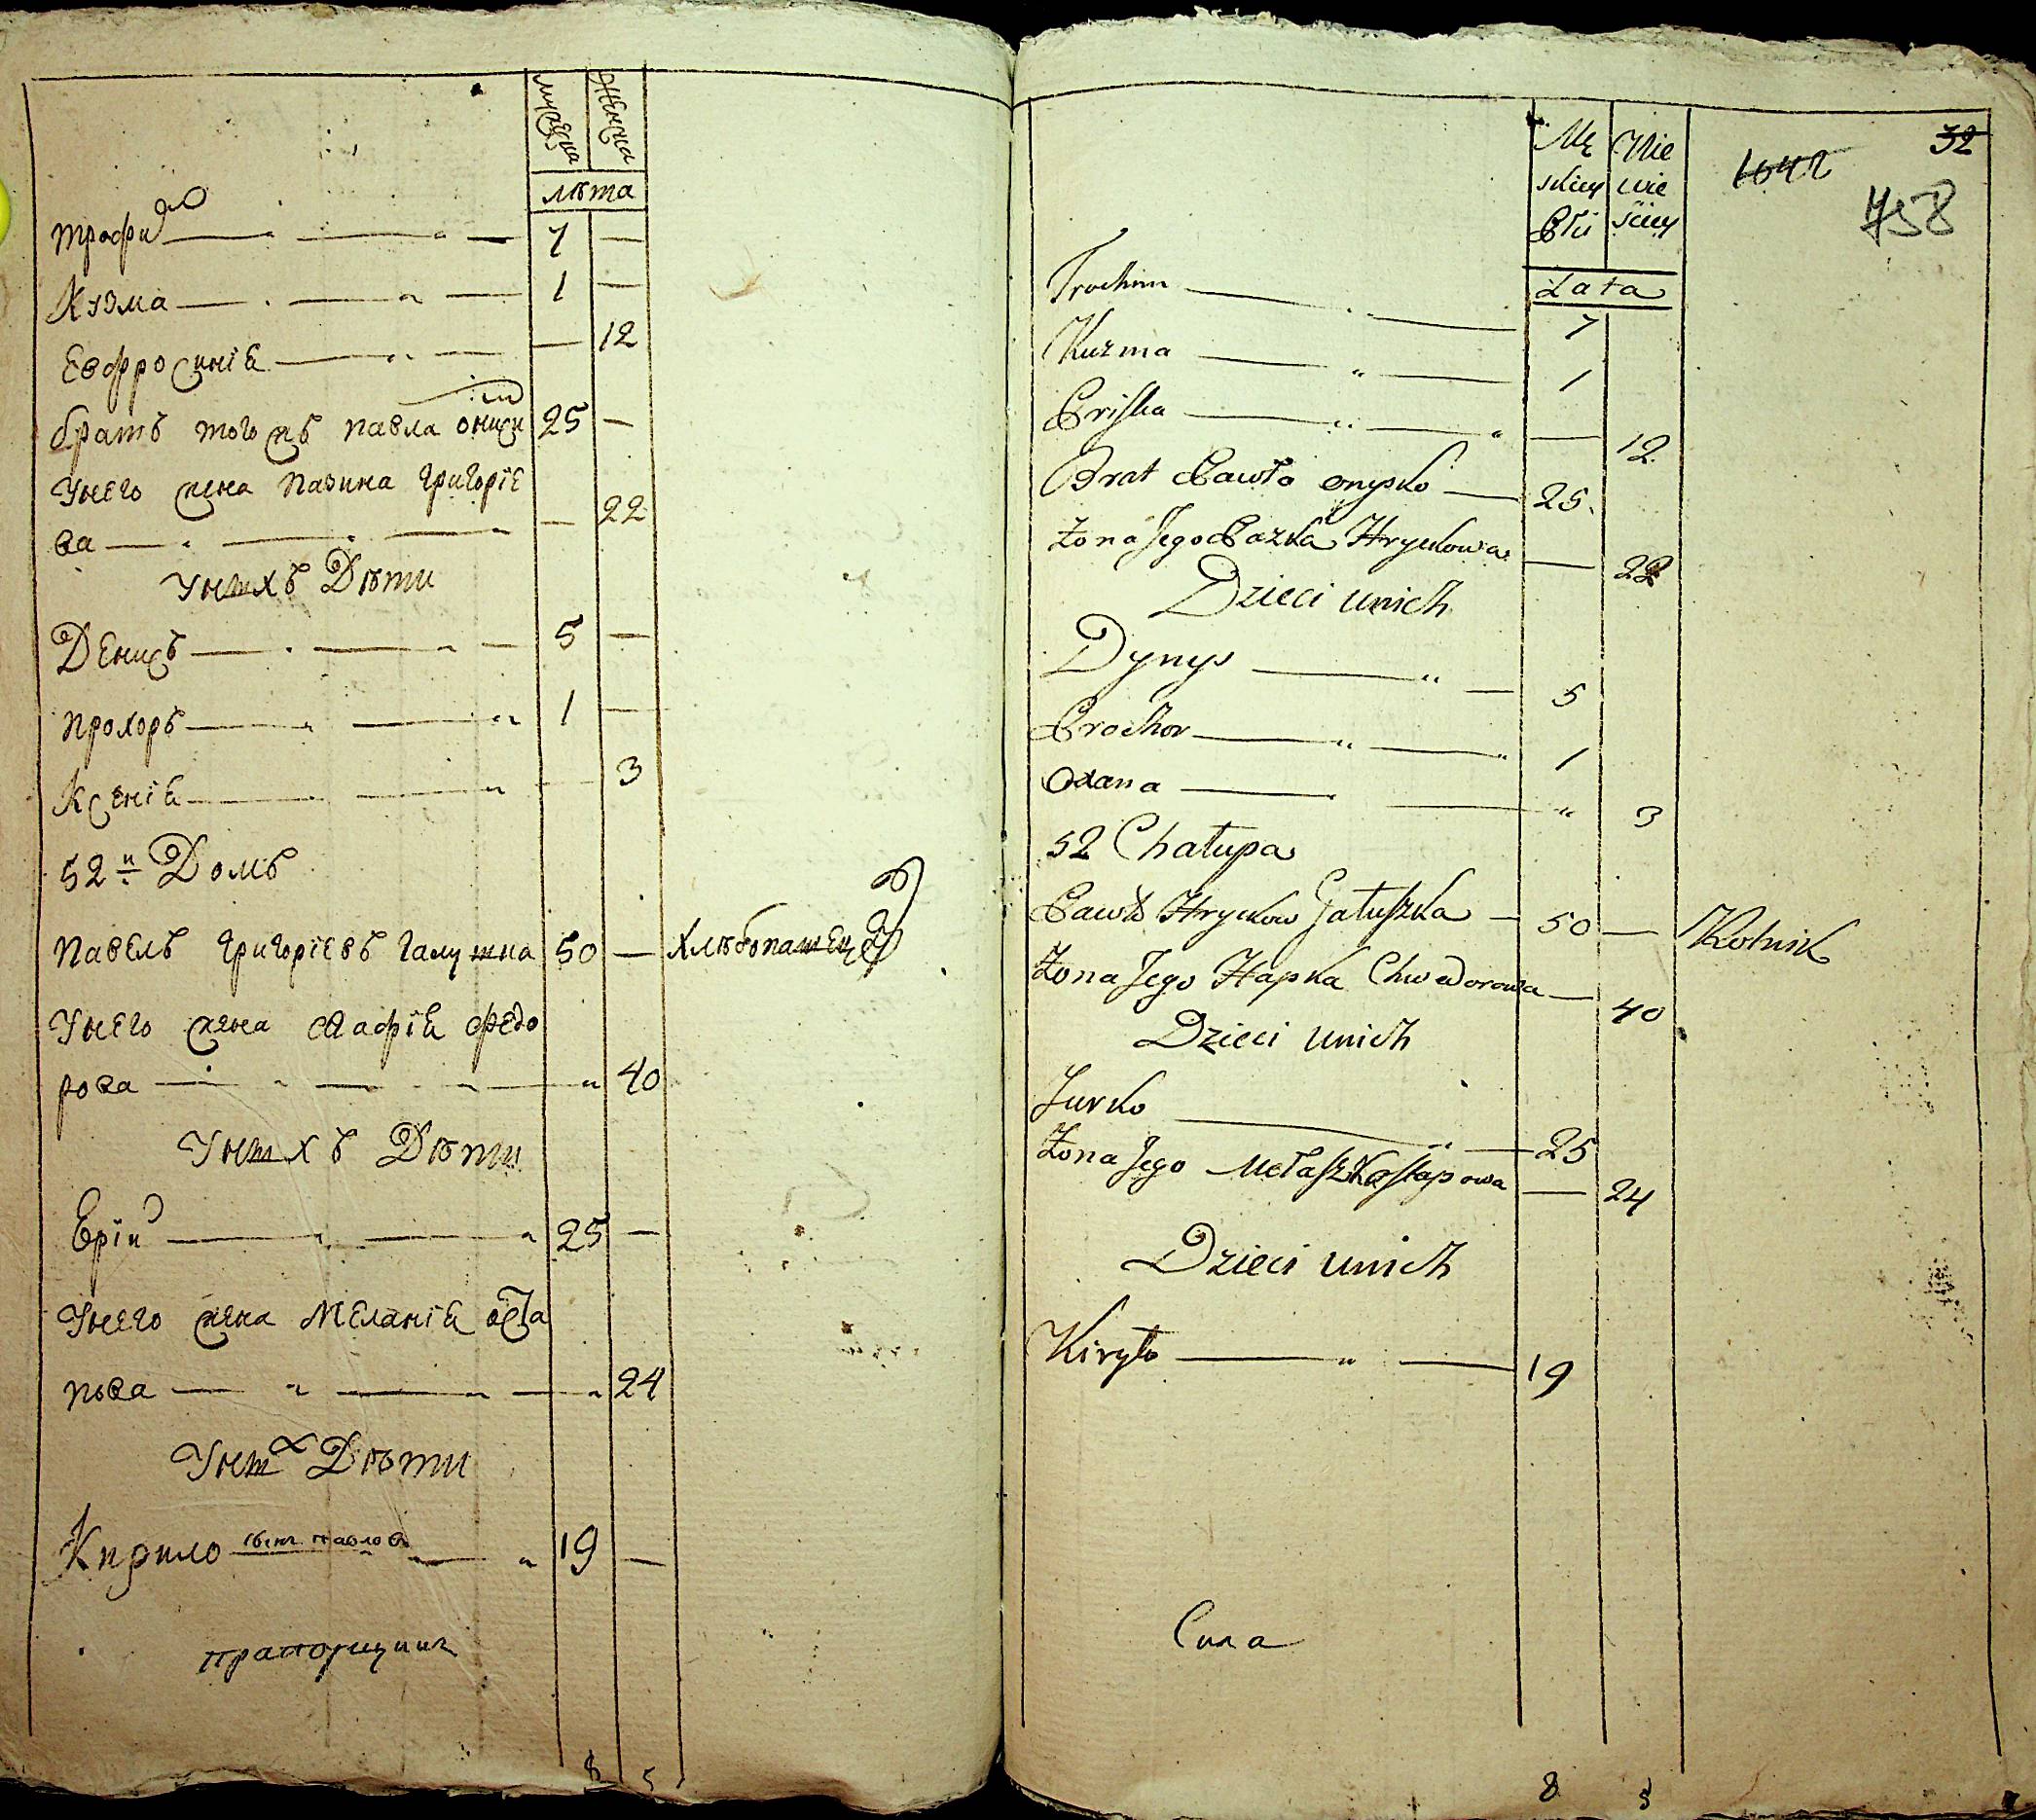 мужеска женска
лѣта
трофим 7
Кузма 1
Евфросиніѣ 12
братъ тогожъ павла онисим 25
Унего жена пазина григоріе
ва 22
Унихъ Дѣти
Денисъ 5
прохоръ 1
Ксеніѣ 3
52й Домъ
павелъ григоріевъ галушка 50 хлѣбопашецъ
Унего жена агафіѣ федо
рова 40
Унихъ Дѣти
Ерій 25
Унего жена Меланіѣ оста
пова 24
Уних Дѣти
Кирило сынъ павлов 19
прапорщикъ
8 5
32
1642
758
Mę Nie
skiey wie
Płci ściey
Lata
Trochim 7
Kuzma 1
Priska 12
Brat Pawła onysko 25
Żona Jego Pazka Hryckowa 22
Dzieci unich
Dynys 5
Prochor 1
Oxana 3
52 Chałupa
Pawło Hryckow Gałuszka 50 Rolnik
Żona Jego Hapka Chwedorowa 40
Dzieci unich
Jurko 25
Żona Jego Melaszka ostapowa 24
Dzieci unich
Kiryło 19
Сила
8 5